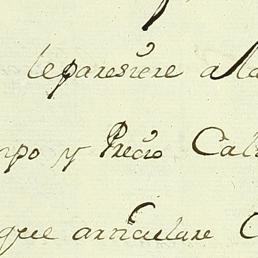 lepareciere a la
mpo y Precio Cal
que articulare C